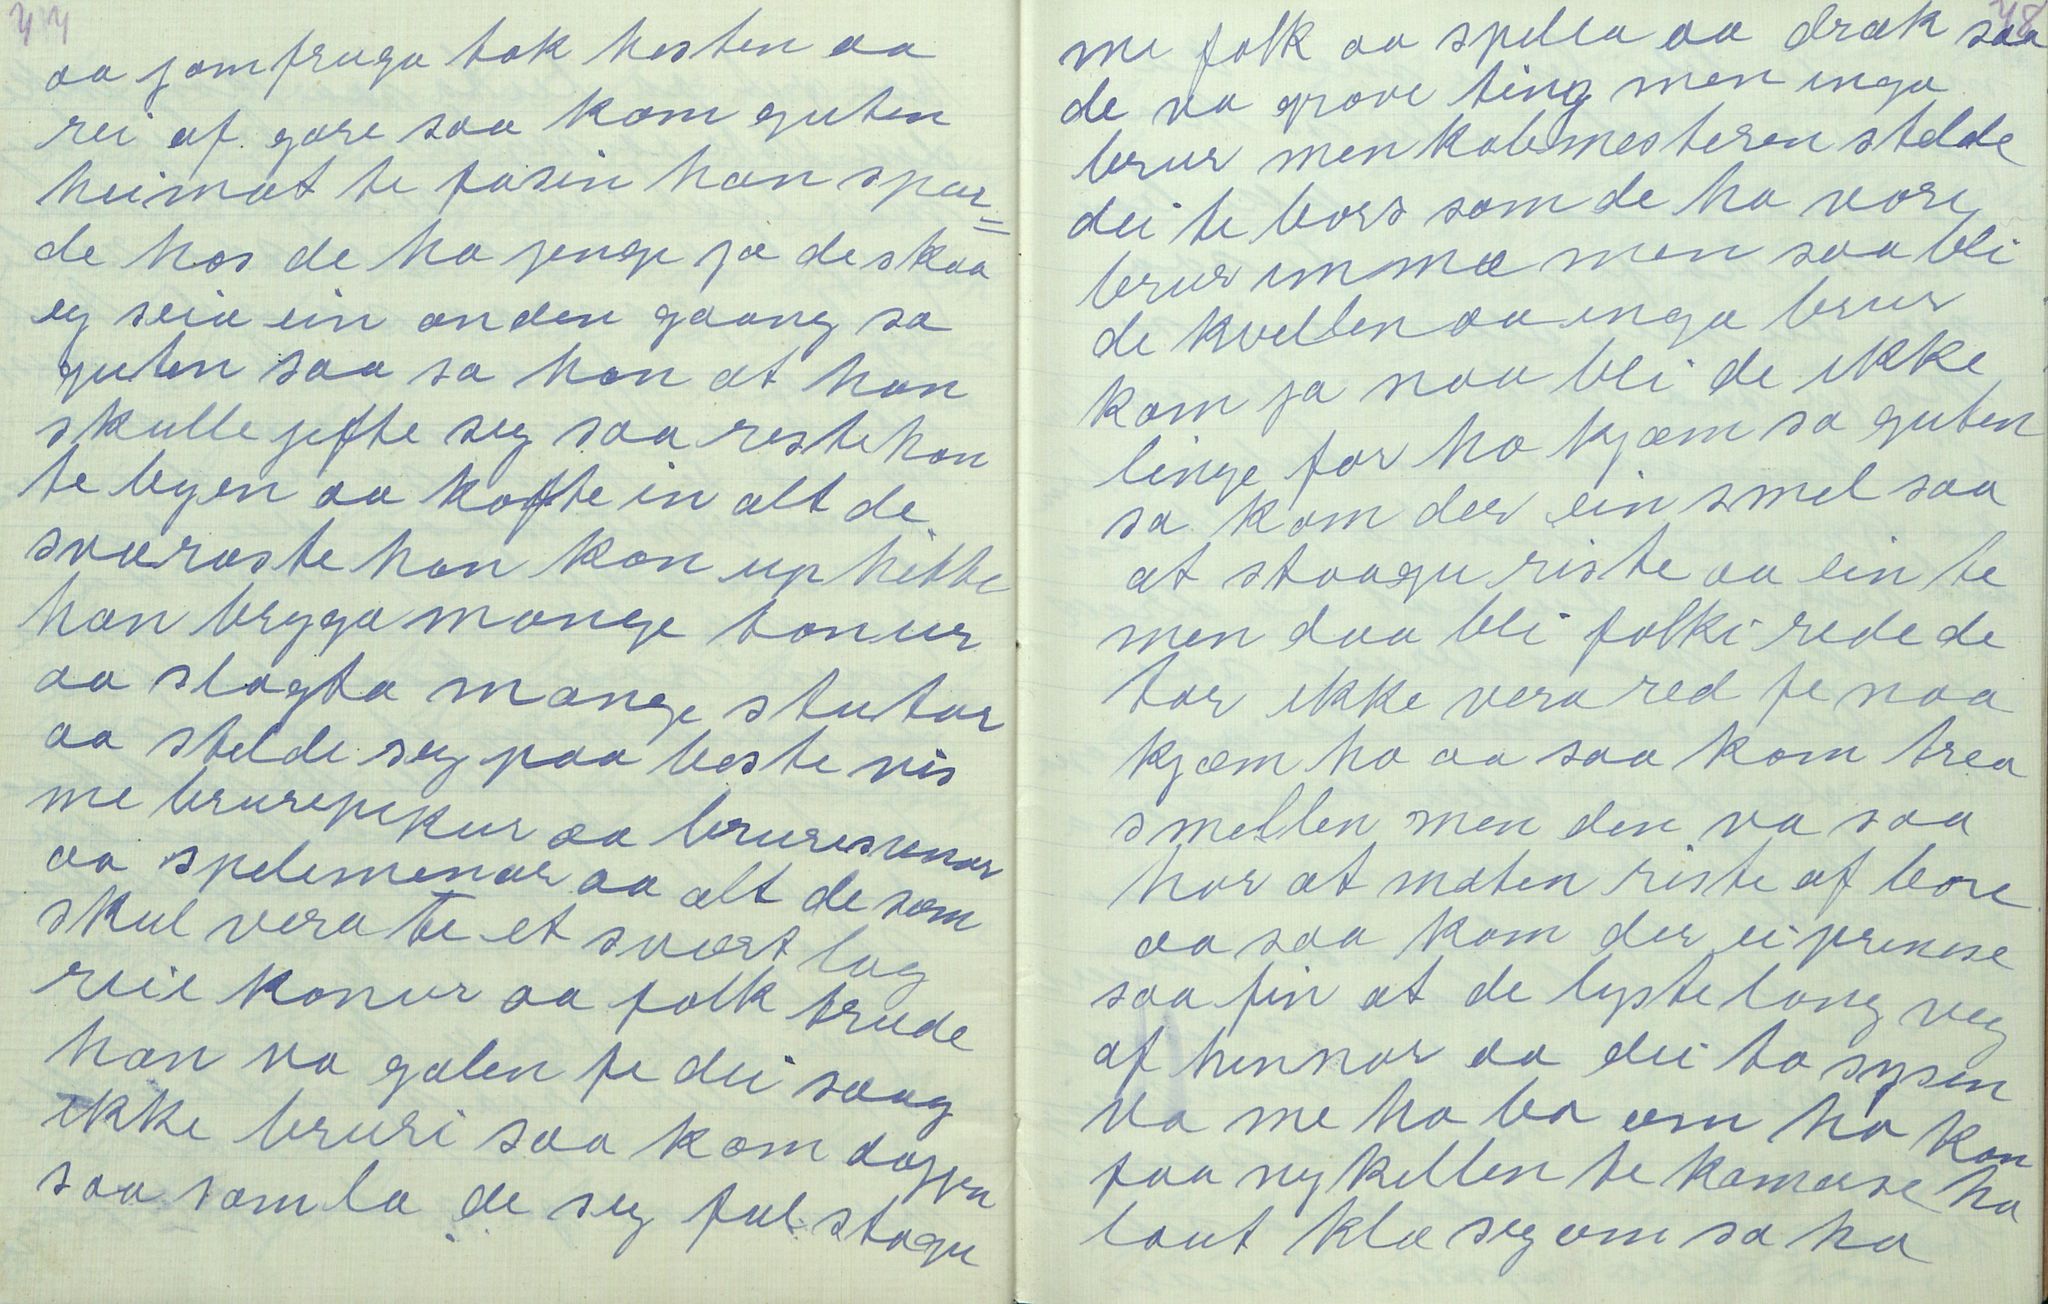 aa jomfruga tok hesten aa
rei af gare saa kom guten
heimat te fasin han spur=
de hos de ha jenge ja de skaa
eg seia ein anden gaang sa
guten saa sa han at han
skulle jefte seg saa reiste han
te byen aa kofte in alt de
sværaste han kan up hitte
han brygga mange tonur
aa slagta mange stutar
aa stelde seg paa beste vis
me brurepikur aa bruresvenar
aa spelemenar aa alt de som
skul vera te et svært lag
reie konur aa folk trude
han va galen fe dei saag
ikke bruri saa kom dagjen
saa samla de seg ful stogu
48
me folk aa spella aa drak saa
de va grove ting men inga
brur men kolemesteren stelde
dei te bors som de ha vore
brur immæ men saa bli
de kvellen aa inga brur
kom ja naa bli de ikke
linge for ho kjæm sa guten
sa kom der ein smel saa
at staagu riste aa ein te
men daa bli folki rede de
tar ikke vera red fe naa
kjæm ho aa saa kom trea
smellen men den va saa
har at maten riste af bore
aa saa kom der ei prinsese
saa fin at de lyste lang veg
af hennar aa dei to sysen
va me ho ba om ho kan
faa nykellen te kamerse ho
laut klæ seg om sa ho